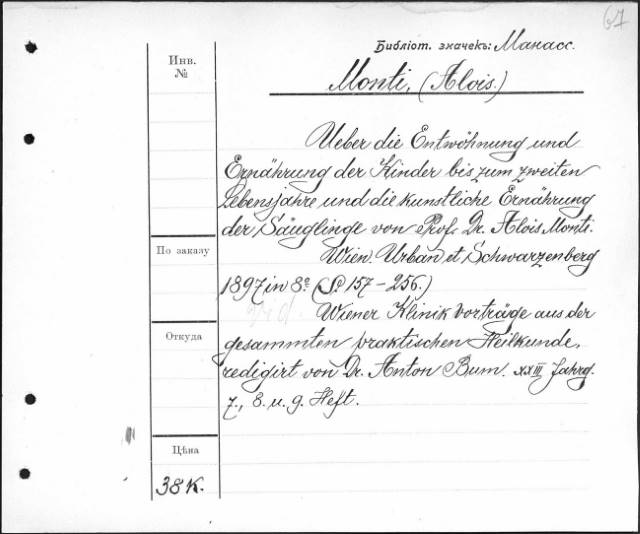 67
Библіот. значекъ: Манасс.
Инв.
№
Monti, (Alois.)
Ueber die Entwöhnung und
Ernährung der Kinder bis zum zweiten
Lebensjahre und die kunstliche Ernährung
der Säuglinge von Prof. Dr. Alois Monti.
По заказу
Wien. Urban et Schwarzenberg
1897 in 8º (S. 157-256.)
Wiener Klinik Vorträge aus der
Откуда
gesammten praktischen Heilkunde,
redigirt von Dr. Anton Bum. XXIII Jahrg.
7., 8. u. 9. Heft.
Цѣна
38 к.